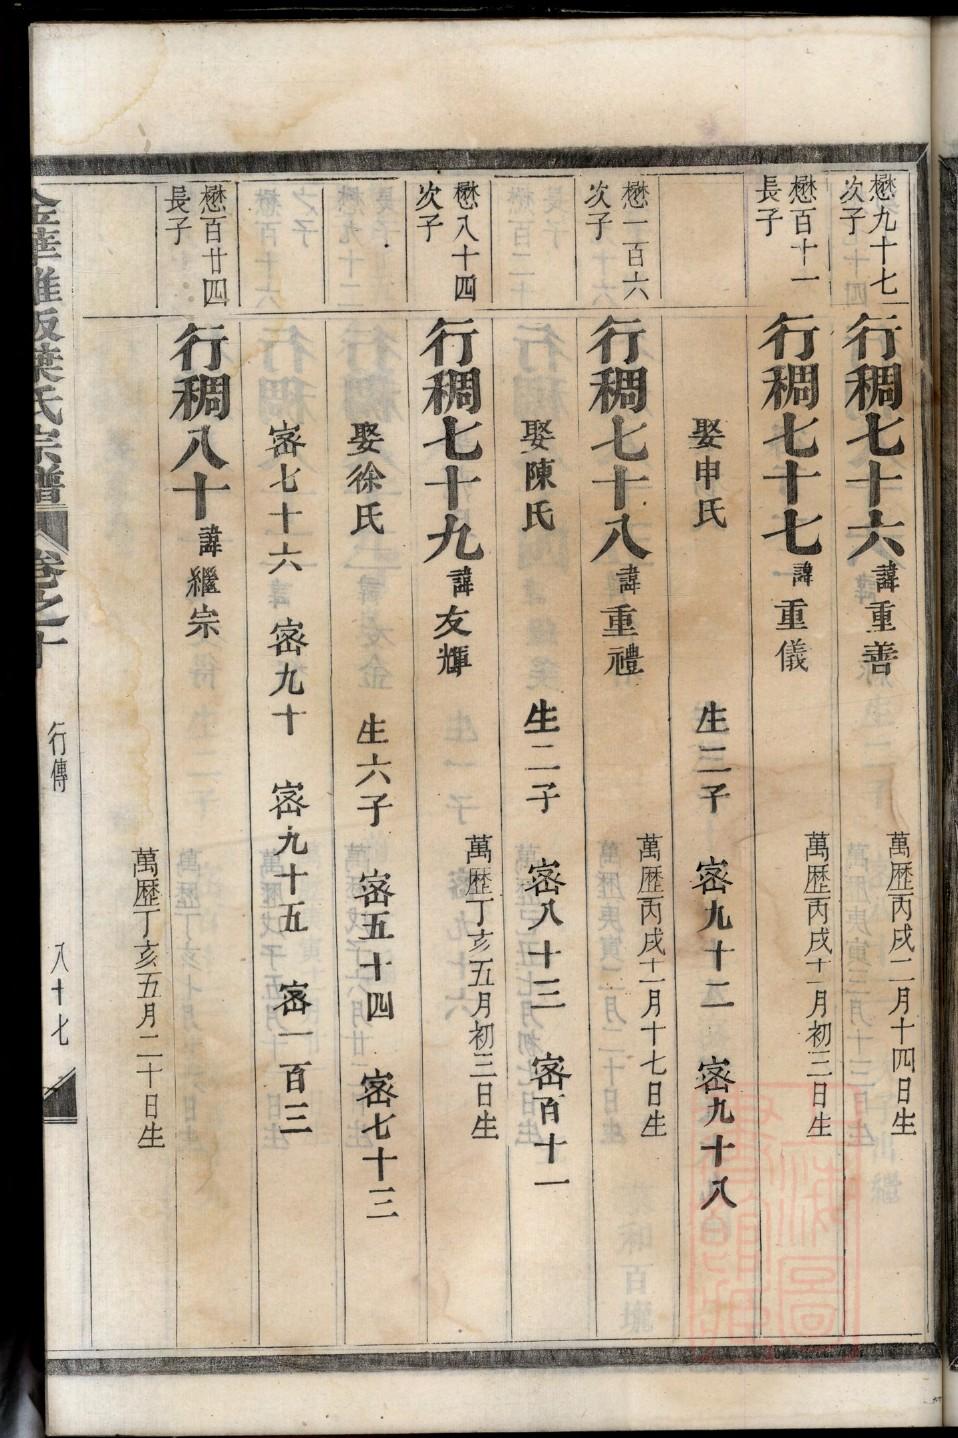 懋九十七
次子
行稠七十六 諱重善 萬歷丙戌二月十四日生
懋百十一
長子
行稠七十七 諱重儀 萬歷丙戌十一月初三日生
娶申氏 生二子 密九十二 密九十八
懋一百六
次子
行稠七十八 諱重禮 萬歷丙戌十一月十七日生
娶陳氏 生二子 密八十三 密百十一
懋八十四
次子
行稠七十九 諱友輝 萬歷丁亥五月初三日生
娶徐氏 生六子 密五十四 密七十三
密七十六 密九十 密九十五 密一百三
懋百廿四
長子
行稠八十 諱繼宗
萬歷丁亥五月二十日生
葉氏宗譜 卷之十 行傳 八十七